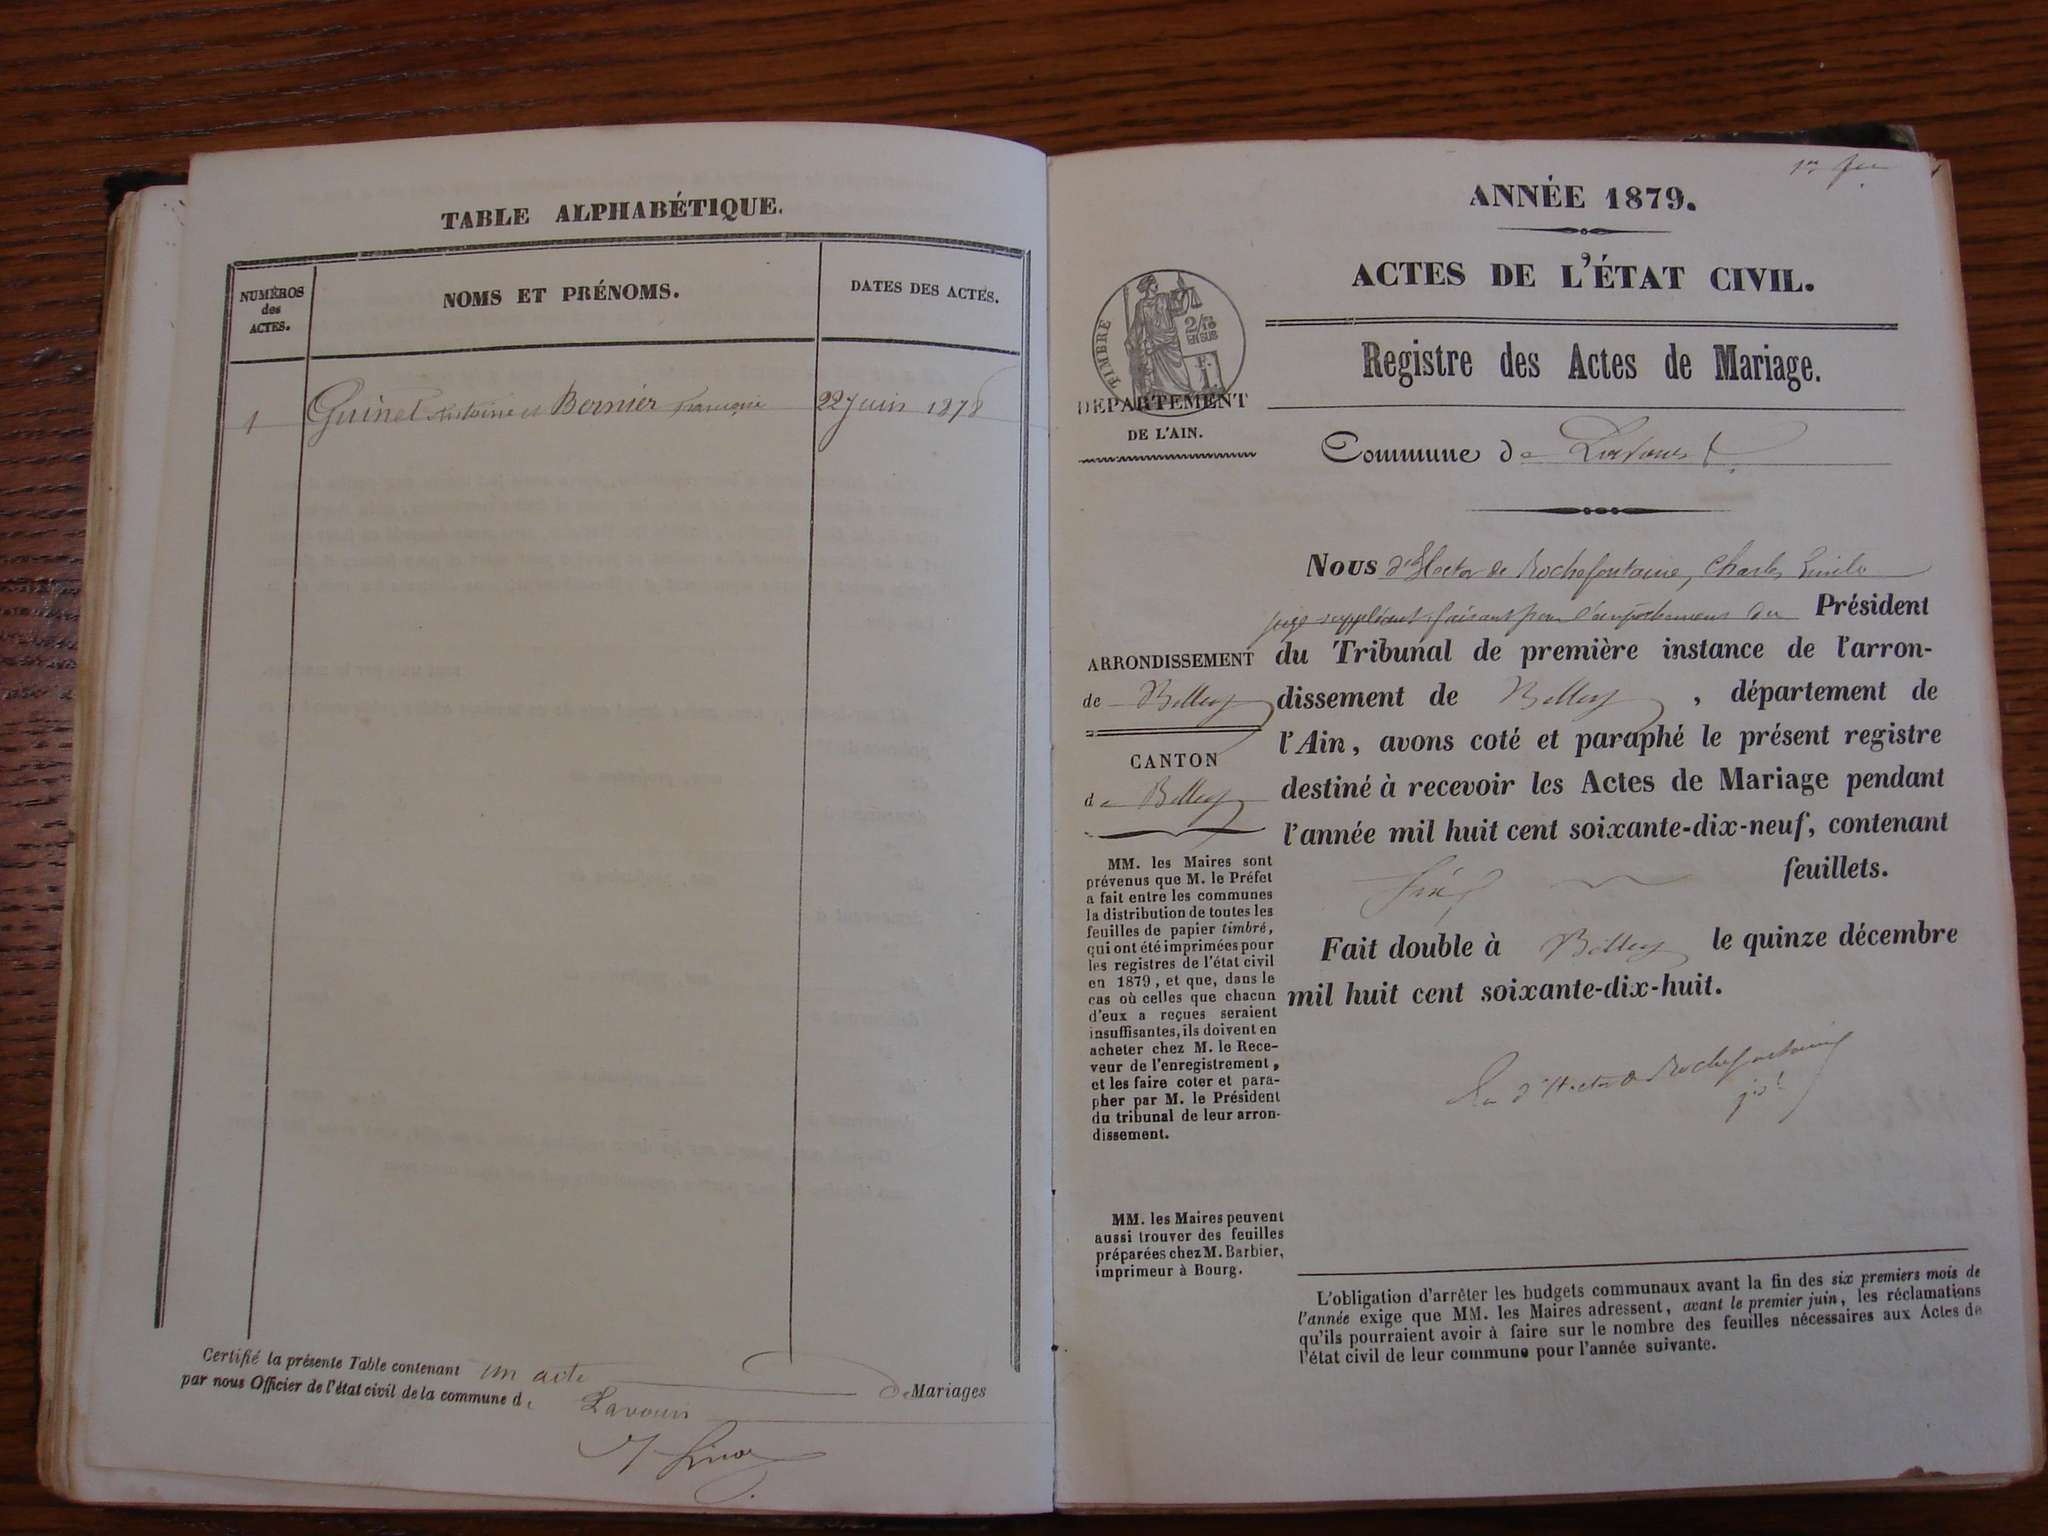 TABLE ALPHABÉTIQUE.
NUMÉROS
des
ACTES.
NOMS ET PRÉNOMS.
DATES DES ACTES.
1 Guinet Antoine et Bernier Françoise 22 juin 1878
Certifié la présente Table contenant un acte de Mariages
par nous Officier de l'état civil de la commune de Lavours
ANNÉE 1879.
ACTES DE L'ÉTAT CIVIL.
Registre des Actes de Mariage.
TIMBRE
2/10
EN SUS
1 F.
DÉPARTEMENT
DE L'AIN.
Commune de Lavours
Nous d'Hector de Rochefontaine, Charles Emile
juge suppléant faisant pour l'empêchement du Président
du Tribunal de première instance de l'arron-
dissement de Belley, département de
l'Ain, avons coté et paraphé le présent registre
destiné à recevoir les Actes de Mariage pendant
l'année mil huit cent soixante-dix-neuf, contenant
six feuillets.
Fait double à Belley le quinze décembre
mil huit cent soixante-dix-huit.
d'Hector de Rochefontaine
ARRONDISSEMENT
de Belley
CANTON
de Belley
MM. les Maires sont
prévenus que M. le Préfet
a fait entre les communes
la distribution de toutes les
feuilles de papier timbré,
qui ont été imprimées pour
les registres de l'état civil
en 1879, et que, dans le
cas où celles que chacun
d'eux a reçues seraient
insuffisantes, ils doivent en
acheter chez M. le Rece-
veur de l'enregistrement,
et les faire coter et para-
pher par M. le Président
du tribunal de leur arron-
dissement.
MM. les Maires peuvent
aussi trouver des feuilles
préparées chez M. Barbier,
imprimeur à Bourg.
L'obligation d'arrêter les budgets communaux avant la fin des six premiers mois de
l'année exige que MM. les Maires adressent, avant le premier juin, les réclamations
qu'ils pourraient avoir à faire sur le nombre des feuilles nécessaires aux Actes de
l'état civil de leur commune pour l'année suivante.